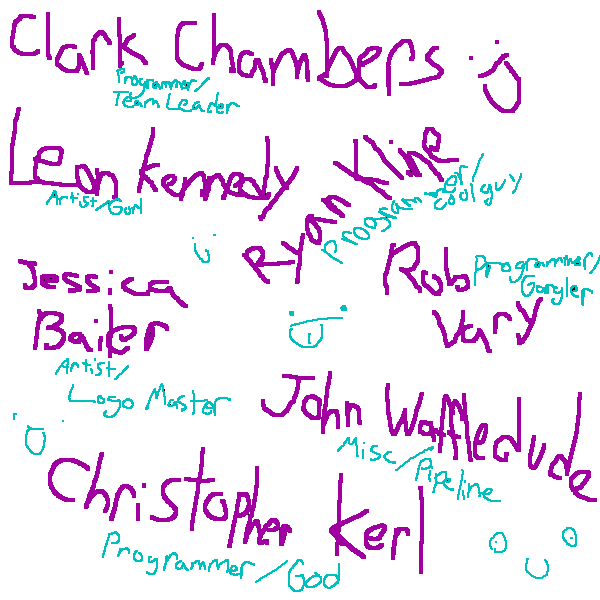 Clark Chambers
Programmer/
Team Leader
Leon Kennedy
Artist/Gurl
Ryan Kline
Programmer/
cool guy
Jessica
Bailer
Artist/
Logo Master
Rob
Vary
Programmer/
Gargler
John Waffledude
Misc/Pipeline
Christopher Kerl
Programmer/God